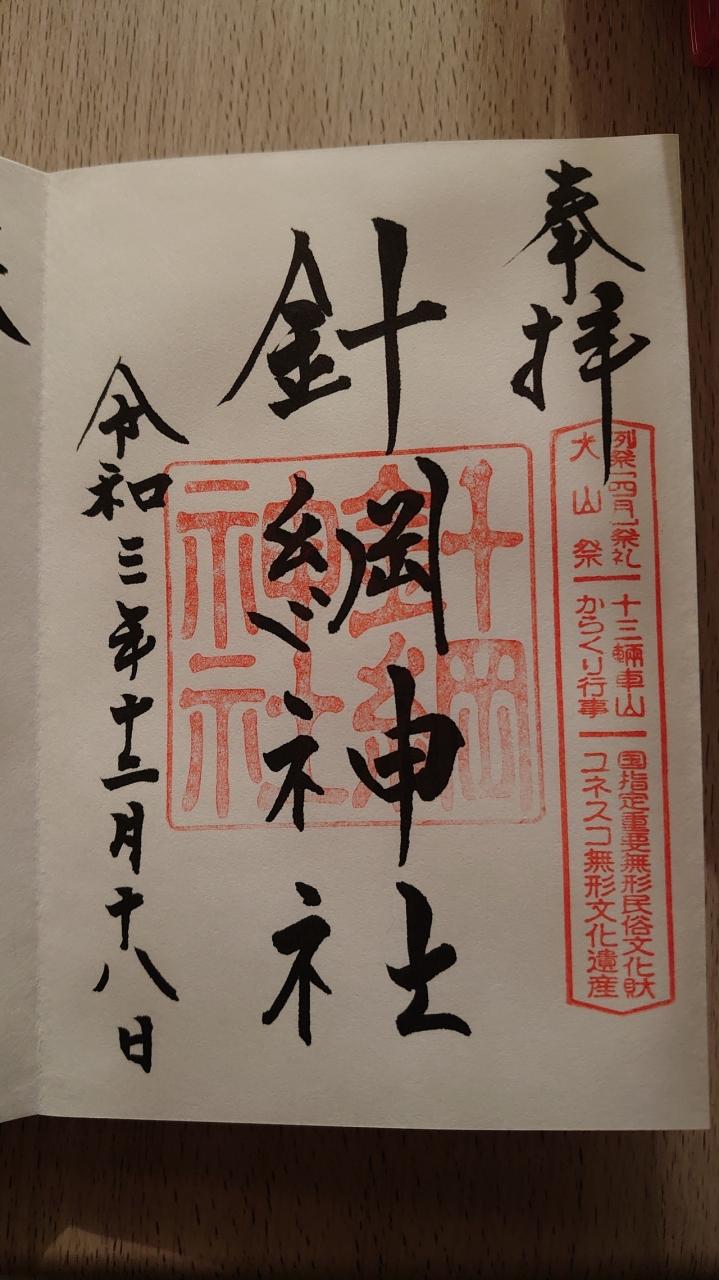 奉拝
列発一四月一祭礼 十三輛車山 国指定重要無形民俗文化財
犬山祭 からくり行事 ユネスコ無形文化遺産
針綱神社
針綱神社
令和三年十二月十八日